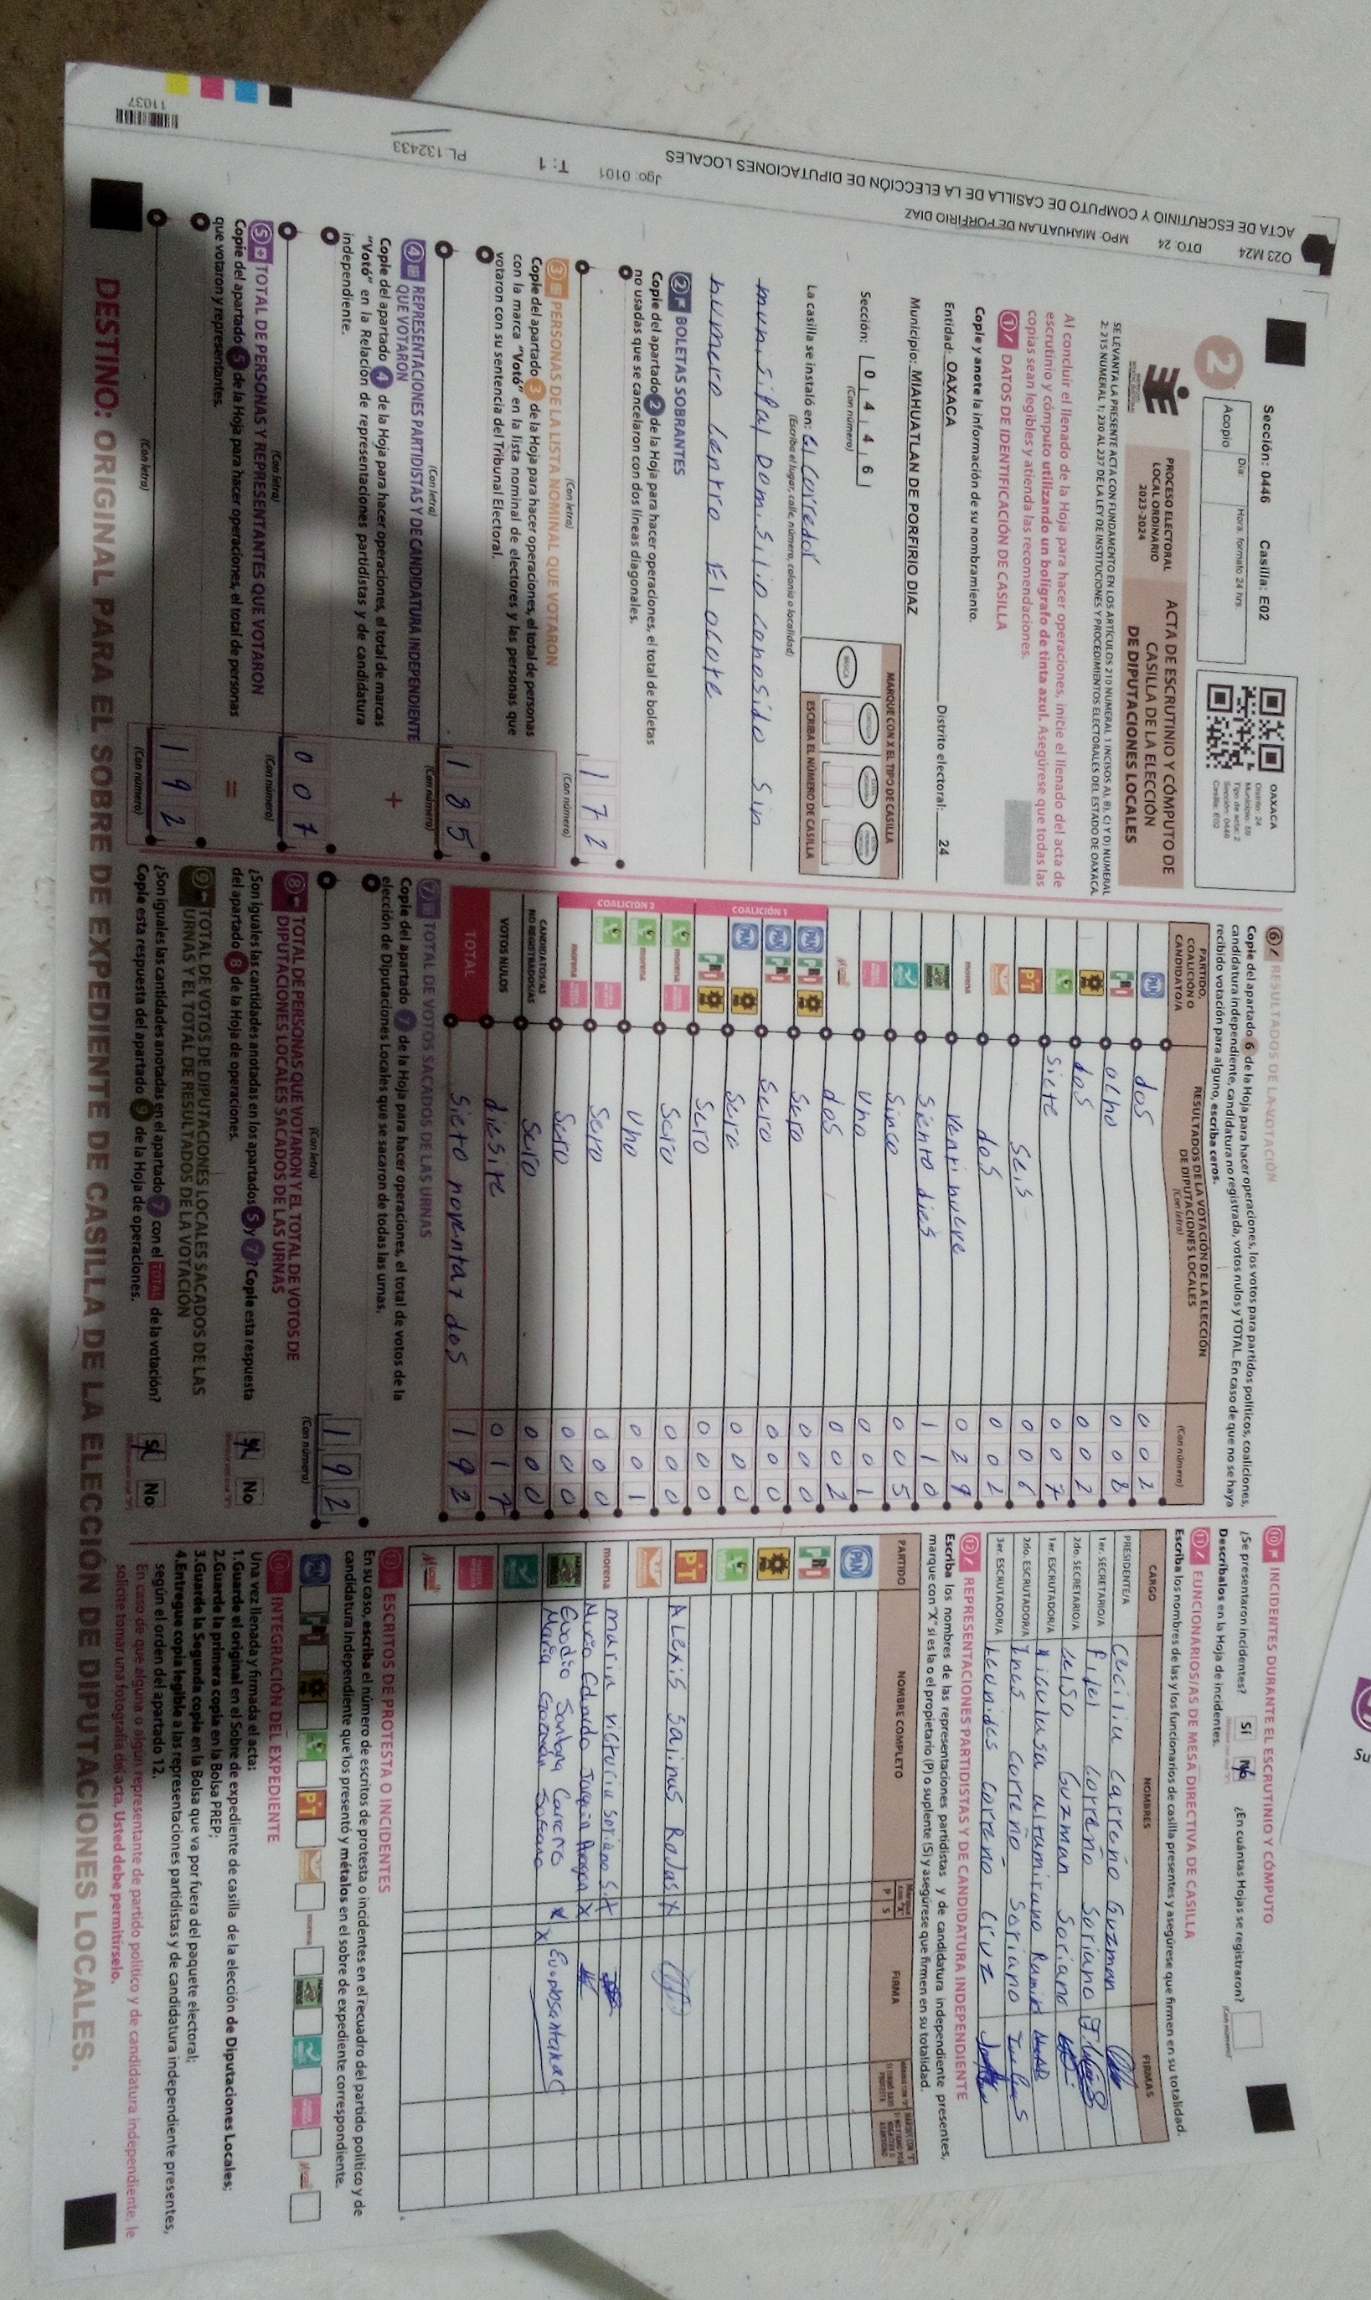 O23 M24
DTO: 24
MPO: MIAHUATLAN DE PORFIRIO DIAZ
ACTA DE ESCRUTINIO Y COMPUTO DE CASILLA DE LA ELECCIÓN DE DIPUTACIONES LOCALES
Jgo: 0101
T: 1
PL: 132433
11037
Sección: 0446 Casilla: E02
2
Acopio
Día:
Hora: formato 24 hrs.
OAXACA
Distrito: 24
Tipo de acta: 2
Sección: 0446
Casilla: E02
PROCESO ELECTORAL
LOCAL ORDINARIO
2023-2024
ACTA DE ESCRUTINIO Y CÓMPUTO DE
CASILLA DE LA ELECCIÓN
DE DIPUTACIONES LOCALES
SE LEVANTA LA PRESENTE ACTA CON FUNDAMENTO EN LOS ARTÍCULOS 210 NUMERAL 1 INCISOS A), B), C) Y D) NUMERAL
2; 215 NUMERAL 1; 230 AL 237 DE LA LEY DE INSTITUCIONES Y PROCEDIMIENTOS ELECTORALES DEL ESTADO DE OAXACA.
Al concluir el llenado de la Hoja para hacer operaciones, inicie el llenado del acta de
escrutinio y cómputo utilizando un bolígrafo de tinta azul. Asegúrese que todas las
copias sean legibles y atienda las recomendaciones.
1 DATOS DE IDENTIFICACIÓN DE CASILLA
Copie y anote la información de su nombramiento.
Entidad: OAXACA Distrito electoral: 24
Municipio: MIAHUATLAN DE PORFIRIO DIAZ
Sección: 0 4 4 6
(Con número)
MARQUE CON X EL TIPO DE CASILLA
BÁSICA
ESCRIBA EL NÚMERO DE CASILLA
La casilla se instaló en: El Corredor
(Escriba el lugar, calle, número, colonia o localidad)
munisipal Domisilio conosido sin
numero centro El ocote
2 BOLETAS SOBRANTES
Copie del apartado 2 de la Hoja para hacer operaciones, el total de boletas
no usadas que se cancelaron con dos líneas diagonales.
172
(Con letra) (Con número)
3 PERSONAS DE LA LISTA NOMINAL QUE VOTARON
Copie del apartado 3 de la Hoja para hacer operaciones, el total de personas
con la marca "Votó" en la lista nominal de electores y las personas que
votaron con su sentencia del Tribunal Electoral.
185
(Con letra) (Con número)
+
4 REPRESENTACIONES PARTIDISTAS Y DE CANDIDATURA INDEPENDIENTE
QUE VOTARON
Copie del apartado 4 de la Hoja para hacer operaciones, el total de marcas
"Votó" en la Relación de representaciones partidistas y de candidatura
independiente.
007
(Con letra) (Con número)
=
5 TOTAL DE PERSONAS Y REPRESENTANTES QUE VOTARON
Copie del apartado 5 de la Hoja para hacer operaciones, el total de personas
que votaron y representantes.
192
(Con letra) (Con número)
6 RESULTADOS DE LA VOTACIÓN
Copie del apartado 6 de la Hoja para hacer operaciones, los votos para partidos políticos, coaliciones,
candidatura independiente, candidatura no registrada, votos nulos y TOTAL. En caso de que no se haya
recibido votación para alguno, escriba ceros.
PARTIDO,
COALICIÓN O
CANDIDATO/A
RESULTADOS DE LA VOTACIÓN DE LA ELECCIÓN
DE DIPUTACIONES LOCALES
(Con letra)
(Con número)
PAN dos 002
PRI ocho 008
dos 002
siete 007
PT seis 006
dos 002
morena venti nueve 029
siento dies 110
sinco 005
uno 001
dos 002
COALICIÓN 1
PAN PRI sero 000
PAN PRI sero 000
PAN sero 000
PRI sero 000
COALICIÓN 2
morena sero 000
morena uno 001
sero 000
morena sero 000
CANDIDATOS/AS
NO REGISTRADOS/AS sero 000
VOTOS NULOS diesite 017
TOTAL sieto noventar dos 192
7 TOTAL DE VOTOS SACADOS DE LAS URNAS
Copie del apartado 7 de la Hoja para hacer operaciones, el total de votos de la
elección de Diputaciones Locales que se sacaron de todas las urnas.
192
(Con letra) (Con número)
8 TOTAL DE PERSONAS QUE VOTARON Y EL TOTAL DE VOTOS DE
DIPUTACIONES LOCALES SACADOS DE LAS URNAS
¿Son iguales las cantidades anotadas en los apartados 5 y 7? Copie esta respuesta
del apartado 8 de la Hoja de operaciones.
Sí No
9 TOTAL DE VOTOS DE DIPUTACIONES LOCALES SACADOS DE LAS
URNAS Y EL TOTAL DE RESULTADOS DE LA VOTACIÓN
¿Son iguales las cantidades anotadas en el apartado 7 con el TOTAL de la votación?
Copie esta respuesta del apartado 9 de la Hoja de operaciones.
Sí No
10 INCIDENTES DURANTE EL ESCRUTINIO Y CÓMPUTO
¿Se presentaron incidentes? Sí No ¿En cuántas Hojas se registraron?
Descríbalos en la Hoja de incidentes.
(Con número)
11 FUNCIONARIOS/AS DE MESA DIRECTIVA DE CASILLA
Escriba los nombres de las y los funcionarios de casilla presentes y asegúrese que firmen en su totalidad.
CARGO NOMBRES FIRMAS
PRESIDENTE/A Cecilia Carreño Guzman
1er. SECRETARIO/A Fidel Correño Soriano
2do. SECRETARIO/A Celso Guzman Soriano
1er. ESCRUTADOR/A Nicolasa altamirano Ramire
2do. ESCRUTADOR/A Ines Correño Soriano
3er. ESCRUTADOR/A Leonidos Correño Cruz
12 REPRESENTACIONES PARTIDISTAS Y DE CANDIDATURA INDEPENDIENTE
Escriba los nombres de las representaciones partidistas y de candidatura independiente presentes,
marque con "X" si es la o el propietario (P) o suplente (S) y asegúrese que firmen en su totalidad.
PARTIDO NOMBRE COMPLETO P S FIRMA
PAN
PRI
PT ALexis Salinas Rodas X
morena maria victoria Soriano
Mario Eduardo Joaquin Aragon X
Evodio Santana Carreño X
Maria X
13 ESCRITOS DE PROTESTA O INCIDENTES
En su caso, escriba el número de escritos de protesta o incidentes en el recuadro del partido político y de
candidatura independiente que los presentó y métalos en el sobre de expediente correspondiente.
PAN PRI PT morena
14 INTEGRACIÓN DEL EXPEDIENTE
Una vez llenada y firmada el acta:
1.Guarde el original en el Sobre de expediente de casilla de la elección de Diputaciones Locales;
2.Guarde la primera copia en la Bolsa PREP;
3.Guarde la Segunda copia en la Bolsa que va por fuera del paquete electoral;
4.Entregue copia legible a las representaciones partidistas y de candidatura independiente presentes,
según el orden del apartado 12.
En caso de que alguna o algún representante de partido político y de candidatura independiente, le
solicite tomar una fotografía del acta, Usted debe permitírselo.
DESTINO: ORIGINAL PARA EL SOBRE DE EXPEDIENTE DE CASILLA DE LA ELECCIÓN DE DIPUTACIONES LOCALES.